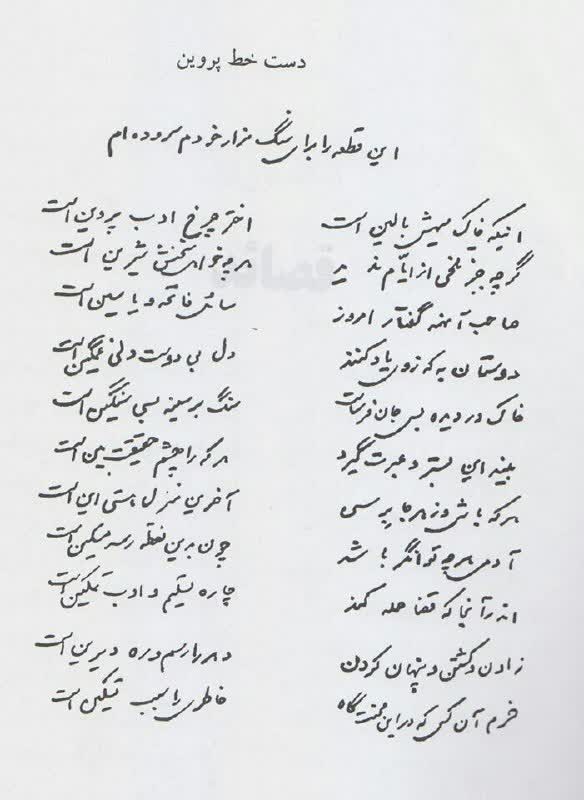 دست خط پروین
این قطعه را برای سنگ مزار خودم سروده ام
اینکه خاک سیهش بالین است اختر چرخ ادب پروین است
گرچه جز تلخی از ایّام ندید هرچه خواهی سخنش شیرین است
صاحب آنهمه گفتار امروز سائل فاتحه و یاسین است
دوستان به که زوی یاد کنند دل بی دوست دلی غمگین است
خاک در دیده بسی جان فرساست سنگ بر سینه بسی سنگین است
بیند این بستر و عبرت گیرد هر که را چشم حقیقت بین است
هر که باشی وز هر جا برسی آخرین منزل هستی این است
آدمی هرچه توانگر باشد چون بدین نقطه رسد مسکین است
اندر آنجا که قضا حمله کند چاره تسلیم و ادب تمکین است
زادن و کشتن و پنهان کردن دهر را رسم و ره دیرین است
خرم آن کس که در این محنت گاه خاطری را سبب تسکین است